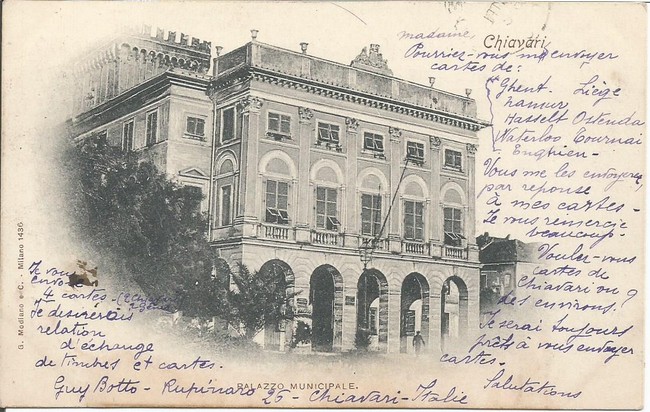 Chiavari.
madame,
Pourriez-vous m'envoyer
cartes de:
Ghent. Liège
Namur
Hasselt Ostenda
Waterloo Tournai
Enghien-
Vous me les envoyerez
par reponse
à mes cartes-
Je vous remercie
beaucoup-
Voulez-vous
cartes de
Chiavari ou
des environs?
Je serai toujours
prêt à vous envoyer
cartes.
Salutations
Je vous
envoie
4 cartes-
Je désirerais
relation
d'échange
de timbres et cartes.
Guy Botto - Rupinaro 26 - Chiavari - Italie
PALAZZO MUNICIPALE.
G. Modiano e C. - Milano 1436